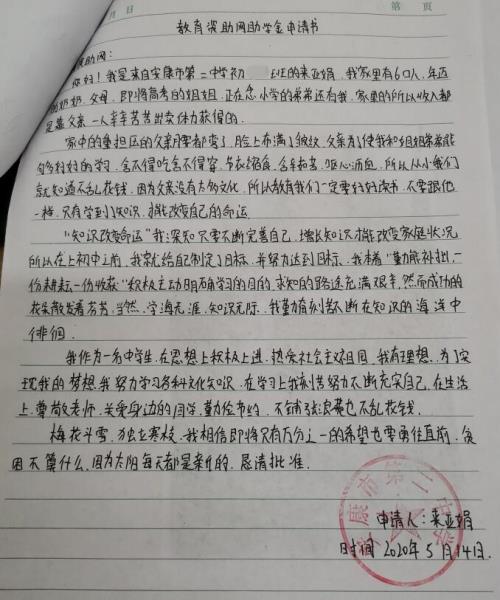 月 日 第 页
教育资助网助学金申请书
助网:
你好!我是来自安康市第二中学初 班的来亚娟,我家里有6口人,年迈
奶奶,父母,即将高考的姐姐,正在念小学的弟弟还有我,家里的所以收入都
是靠父亲一人辛辛苦苦出卖体力获得的.
家中的重担压的父亲腰都弯了,脸上布满了皱纹,父亲为了使我和姐姐弟弟能
够好好的学习,舍不得吃舍不得穿,节衣缩食,含辛茹苦,呕心沥血,所以从小我们
就知道不乱花钱,因为父亲没有太多文化,所以教育我们一定要好好读书,不要跟他
一样,只有学到了知识,才能改变自己的命运
"知识改变命运"我深知只要不断完善自己,增长知识,才能改变家庭状况
所以在上初中之前,我就给自己制定了目标,并努力达到目标,我本着"勤能补拙,一
份耕耘一份收获"积极主动明确学习的目的,求知的路途充满艰辛,然而成功的
花朵散发着芬芳,当然,学海无涯,知识无际,我勤奋刻苦不断在知识的海洋中
徘徊.
我作为一名中学生,在思想上积极上进,热爱社会主义祖国,我有理想,为了实
现我的梦想我努力学习各种文化知识,在学习上我刻苦努力不断充实自己,在生活
上,尊敬老师,关爱身边的同学,勤俭节约,不铺张浪费也不乱花钱.
梅花斗雪,独立寒枝,我相信即将只有万分之一的希望也要勇往直前,贫
困不算什么,因为太阳每天都是新的.恳请批准.
申请人:来亚娟
时间2020年5月14日.
康市第二中学